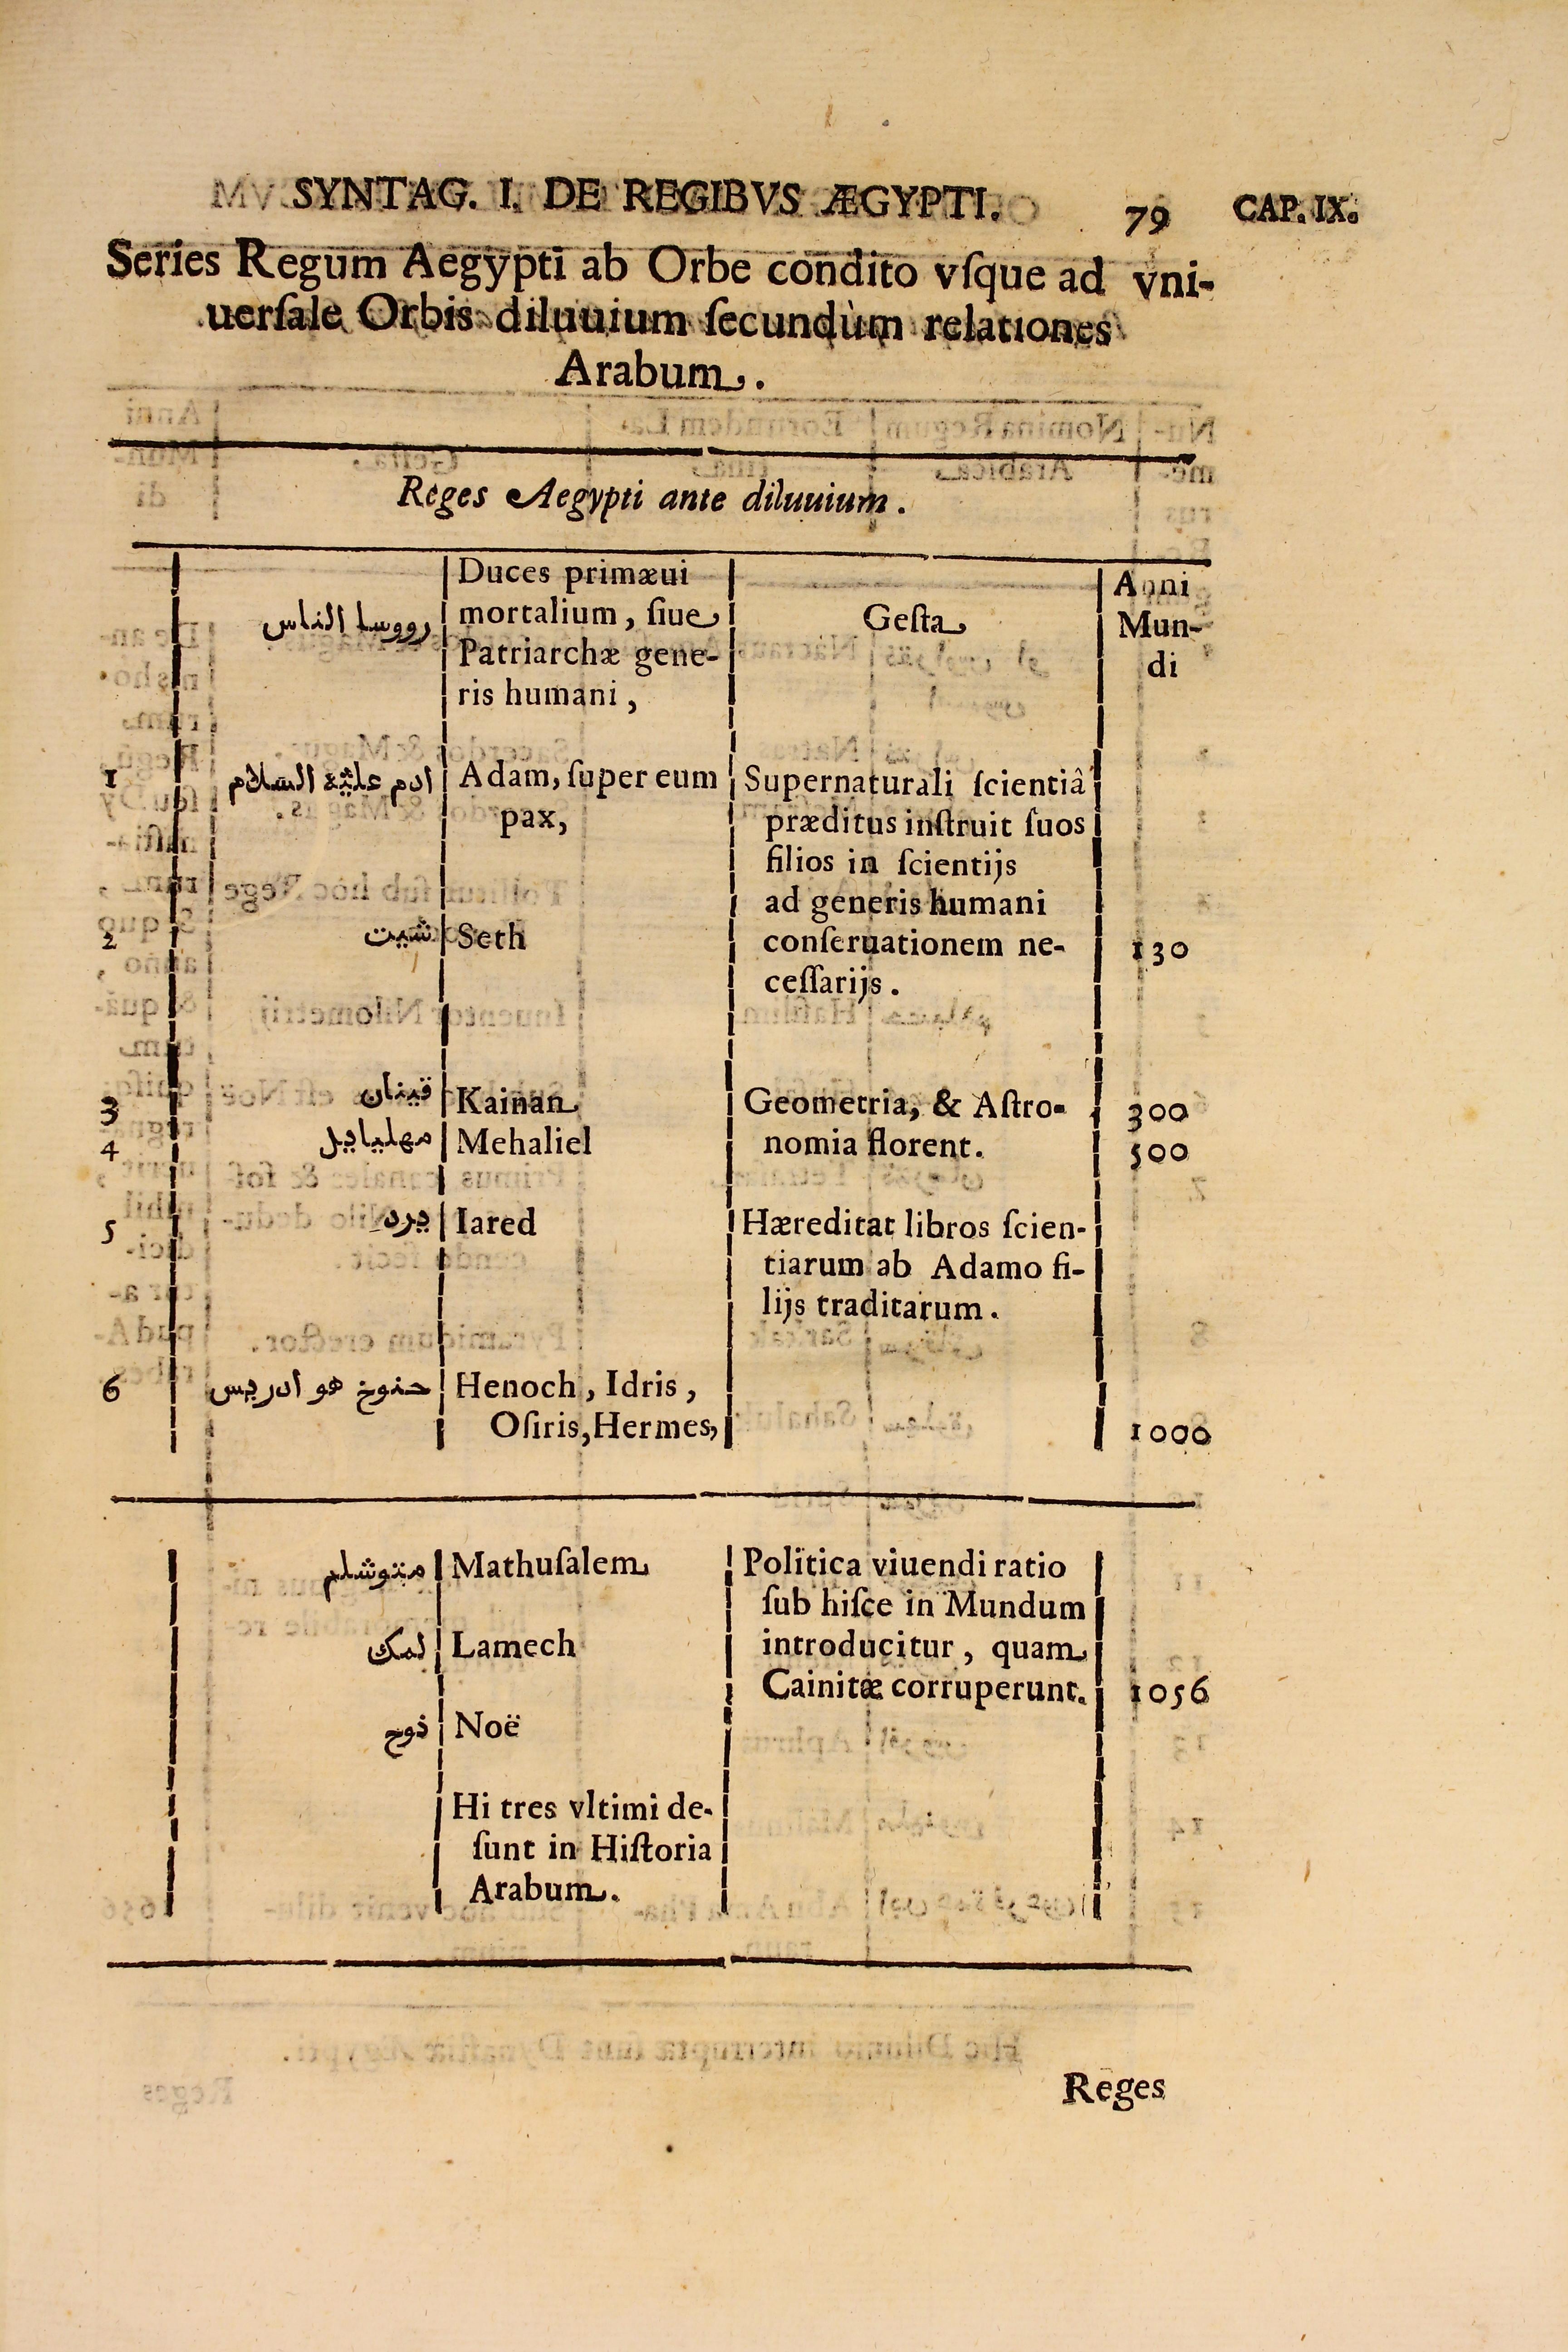 SYNTAG. I. DE REGIBVS ÆGYPTI. 79 CAP. IX.
Series Regum Aegypti ab Orbe condito vſque ad vni-
uerſale Orbis diluuium ſecundùm relationes
Arabum.
Reges Aegypti ante diluuium.
رووسا الناس
Duces primæui
mortalium, ſiue
Patriarchæ gene-
ris humani,
Geſta
Anni
Mun-
di
1
ادم عليه السلام
Adam, ſuper eum
pax,
Supernaturali ſcientiâ
præditus inſtruit ſuos
filios in ſcientijs
ad generis humani
conſeruationem ne-
ceſſarijs.
2
شيت
Seth
130
3
قينان
Kainan
Geometria, & Aſtro-
nomia florent.
300
4
مهليايل
Mehaliel
500
5
يرد
Iared
Hæreditat libros ſcien-
tiarum ab Adamo fi-
lijs traditarum.
6
حنوخ هو ادريس
Henoch, Idris,
Oſiris, Hermes,
1000
متوشلم
Mathuſalem
Politica viuendi ratio
ſub hiſce in Mundum
introducitur, quam
Cainitæ corruperunt.
لمك
Lamech
1056
نوح
Noë
Hi tres vltimi de-
ſunt in Hiſtoria
Arabum.
Reges